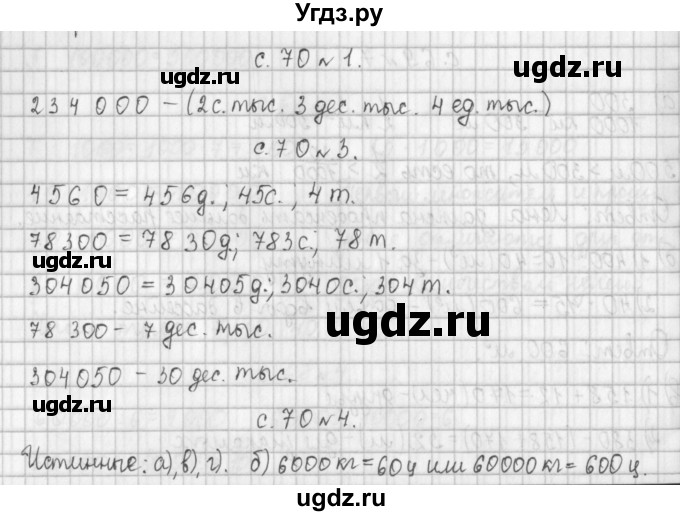 Угдз.ру
с. 70 № 1.
ugdz.ru ugdz.ru
234 000 – (2 с. тыс. 3 дес. тыс. 4 ед. тыс.)
с. 70 № 3.
4560 = 456д.; 45с., 4 т.
78300 = 78 30д; 783с; 78 т.
ugdz.ru
304050 = 30405д.; 3040с.; 304т.
ugdz.ru
78 300 – 7 дес. тыс.
304050 – 30 дес. тыс.
ugdz.ru
с. 70 № 4.
Истинные: а), в), г). б) 6000 кг = 60 ц или 60000 кг = 600 ц.
ugdz.ru